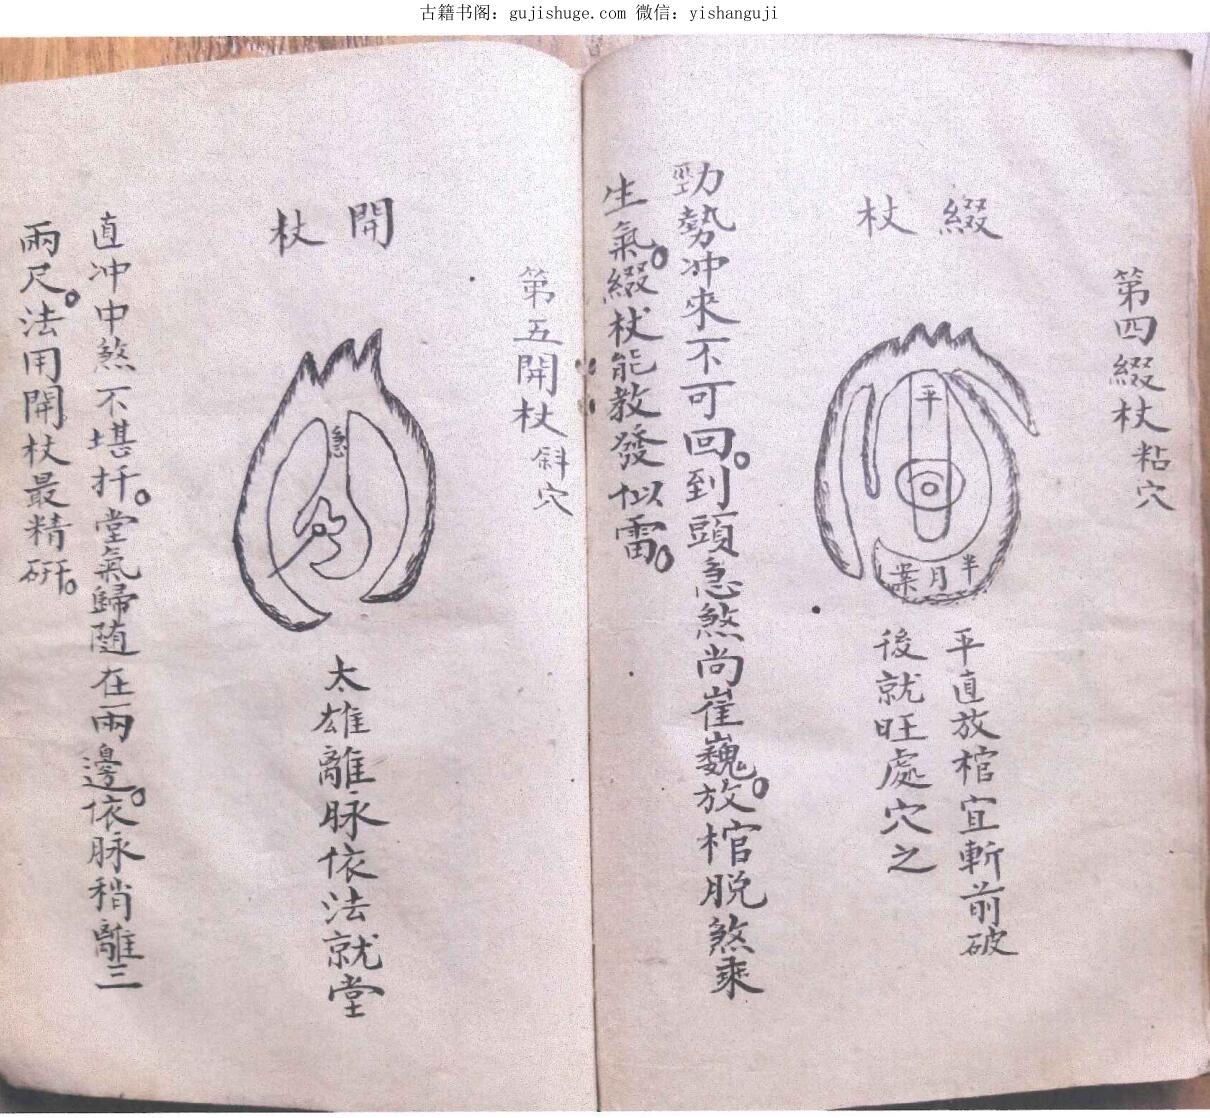 古籍书阁：gujishuge.com 微信：yishanguji
第四綴杖 粘穴
綴杖
平
半月案
平直放棺宜斬前破
後就旺處穴之
勁勢冲來不可回。到頭急煞尚崔巍。放棺脱煞乘
生氣。綴杖能教發似雷。
第五開杖 斜穴
開杖
急
太雄離脉依法就堂
直冲中煞不堪扦。堂氣歸随在兩邊。依脉稍離三
兩尺。法用開杖最精研。